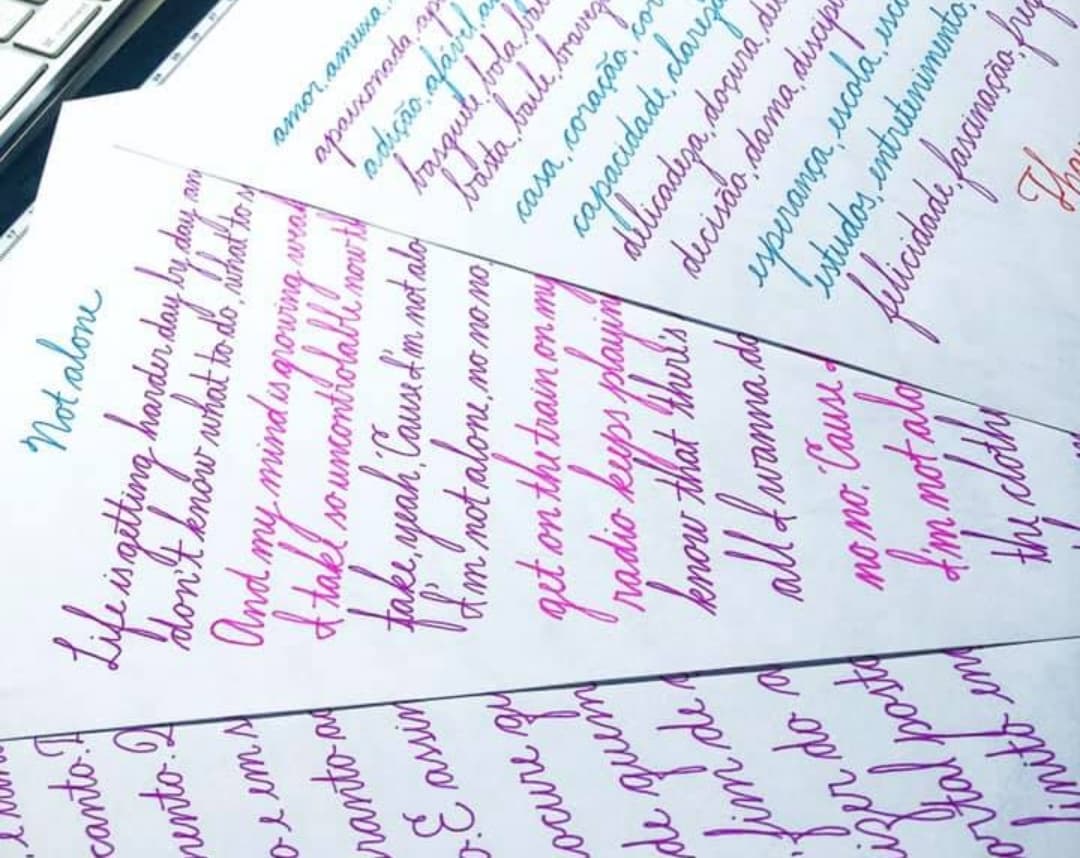 amor, ameixa,
apaixonada, ap
adição, afável, a
basquete, bola, ba
basta, baile, braveza
casa, coração, cor
capacidade, clareza
delicadeza, doçura, du
decisão, dama, discipl
esperança, escola, esco
estudos, entretenimento,
felicidade, fascinação,
Not alone
Life is getting harder day by day an
don't know what to do, what to s
And my mind is growing weak
I take so uncontrolable now th
fake, yeah, 'Cause I'm not alo
I'm not alone, no no no
get on the train on my
radio keeps playin
know that there's
all I wanna do
no no. 'Cause I
I'm not alo
the cloth
canto.
mento.
o e em s
ranto a
o. E assim
ocure qu
de quem
fim de
izer do a
tal posta
finito en